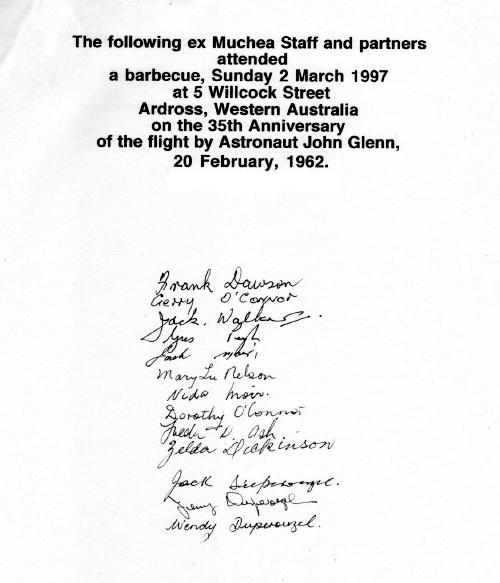 The following ex Muchea Staff and partners
attended
a barbecue, Sunday 2 March 1997
at 5 Willcock Street
Ardross, Western Australia
on the 35th Anniversary
of the flight by Astronaut John Glenn,
20 February, 1962.
Frank Dawson
Gerry O'Connor
Jack. Walker.
Mary Lu Nelson
Nida Moir.
Dorothy O'Connor
D. Ash
Zelda Dickinson
Jack Duperouzel.
Duperouzel
Wendy Duperouzel.